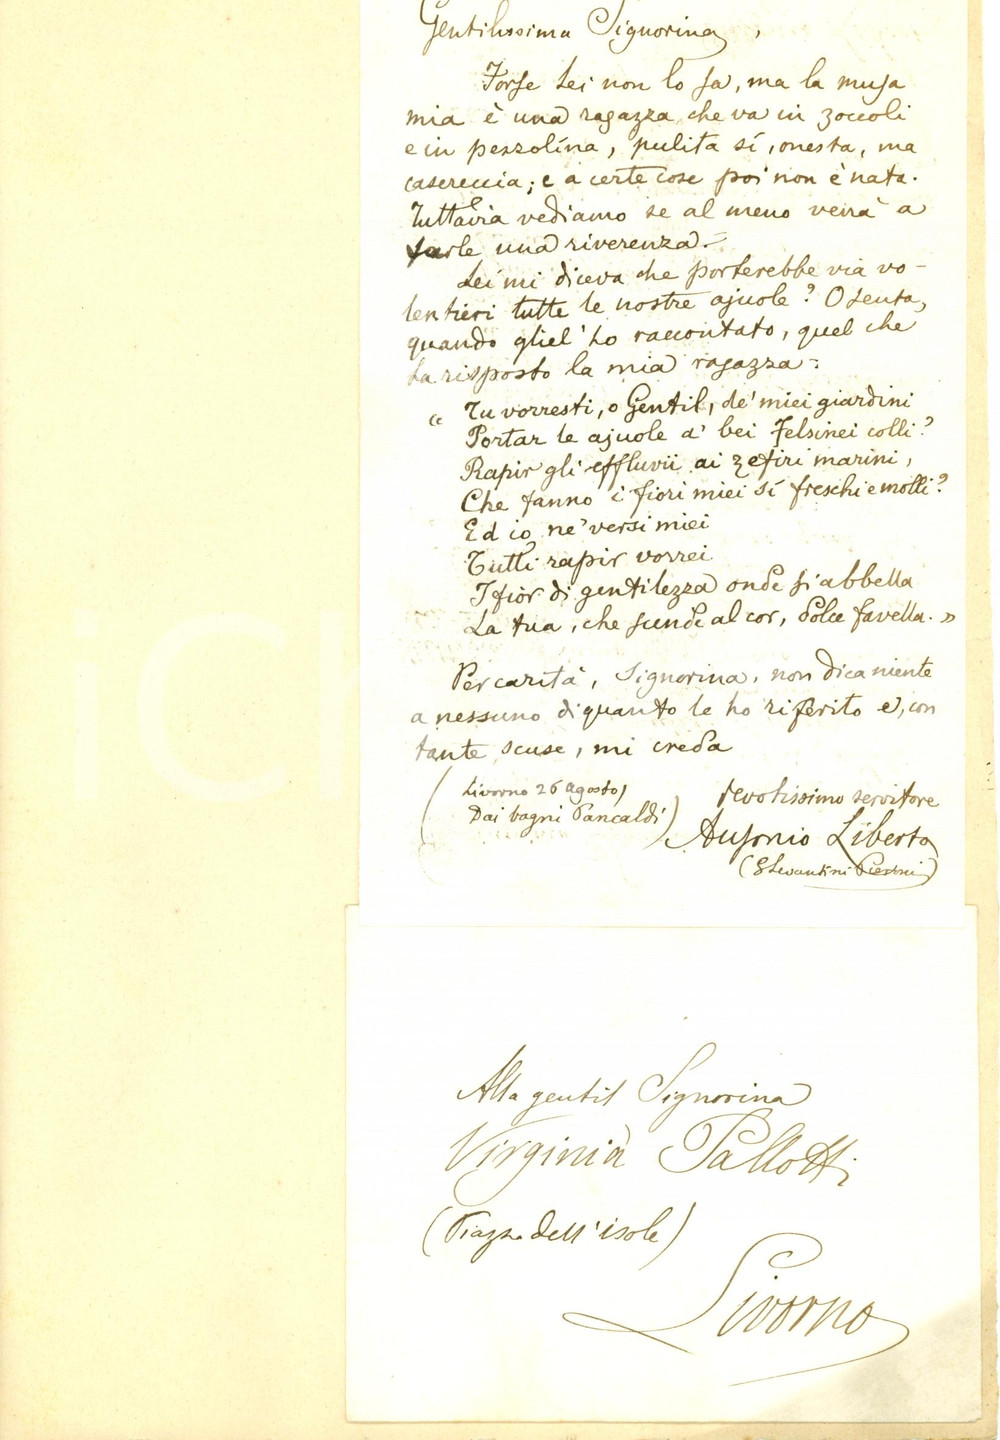 Gentilissima Signorina,
Forse Lei non lo sa, ma la musa
mia è una ragazza che va in zoccoli
e in pezzolina, pulita sí, onesta, ma
casereccia; e a certe cose poi non è nata.
Tuttavia vediamo se al meno verrà a
farle una riverenza.
Lei mi diceva che porterebbe via vo-
lentieri tutte le nostre ajuole? O senta,
quando gliel'ho raccontato, quel che
ha risposto la mia ragazza:
« Tu vorresti, o Gentil, de' miei giardini
Portar le ajuole a' bei Felsinei colli?
Rapir gli effluvii ai zefiri marini,
Che fanno i fiori miei sí freschi e molli?
Ed io ne' versi miei
Tutti rapir vorrei
I fior di gentilezza onde si abbella
La tua, che scende al cor, dolce favella. »
Per carità, Signorina, non dica niente
a nessuno di quanto le ho riferito e, con
tante scuse, mi creda
(Livorno 26 agosto,
Dai bagni Pancaldi)
devotissimo servitore
Ausonio Liberto
(G Levantini Pieroni)
Alla gentil Signorina
Virginia Pallotti
(Piazza dell'isole)
Livorno